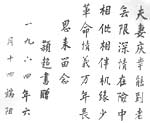 夫妻庆幸能到老
无限深情在险中
相依相伴机缘少
革命情义万年长
思来留念
颖超书赠
一九八四年六
月十四